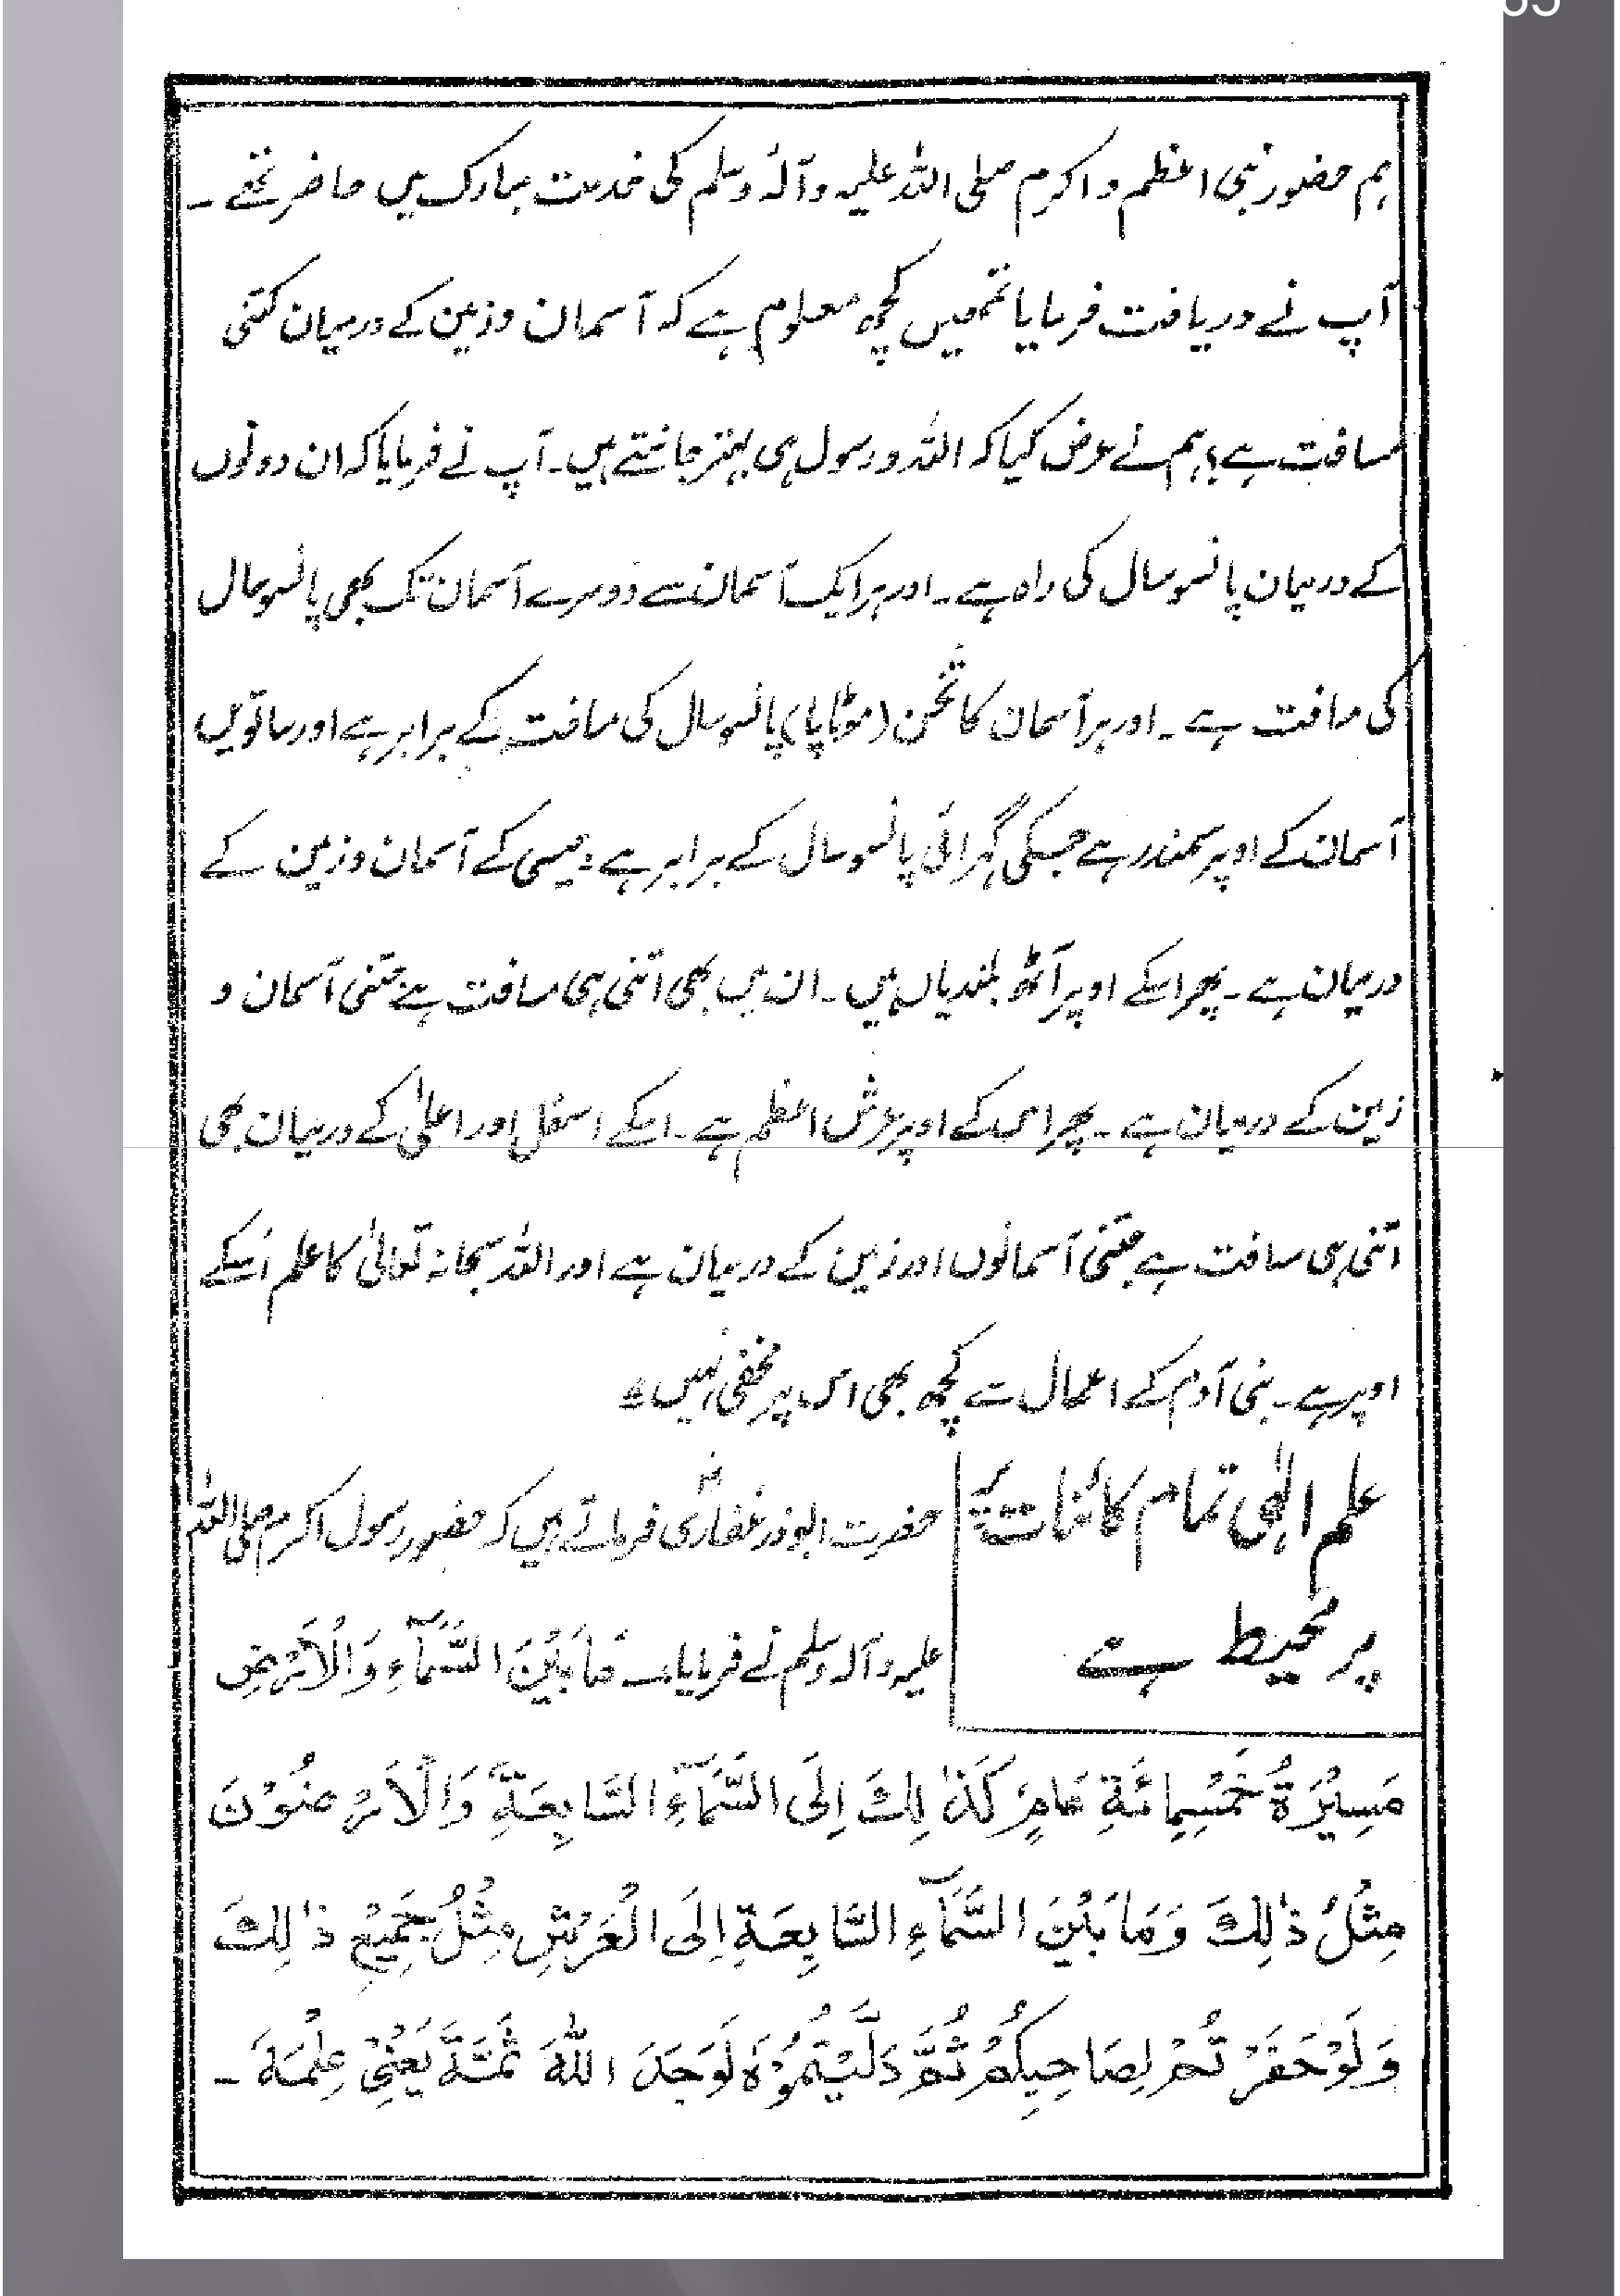 ہم حضور نبی اعظم و اکرم صلی اللہ علیہ وآلہٖ وسلم کی خدمت مبارک میں حاضر تھے ۔
آپ نے دریافت فرمایا تمھیں کچھ معلوم ہے کہ آسمان و زمین کے درمیان کتنی
مسافت ہے؟ ہم نے عرض کیا کہ اللہ و رسول ہی بہتر جانتے ہیں۔ آپ نے فرمایا کہ ان دونوں
کے درمیان پانسو سال کی راہ ہے ۔ اور ہر ایک آسمان سے دوسرے آسمان تک بھی پانسو سال
کی مسافت ہے ۔ اور ہر آسمان کا ثخن (موٹاپا) پانسو سال کی مسافت کے برابر ہے اور ساتویں
آسمان کے اوپر سمندر ہے جسکی گہرائی پانسو سال کے برابر ہے جیسی کے آسمان و زمین کے
درمیان ہے ۔ پھر اسکے اوپر آٹھ بلندیاں ہیں ۔ ان میں بھی اتنی ہی مسافت ہے جتنی آسمان و
زمین کے درمیان ہے ۔ پھر اس کے اوپر عرش اعظم ہے ۔ اسکے اسفل اور اعلیٰ کے درمیان بھی
اتنی ہی مسافت ہے جتنی آسمانوں اور زمین کے درمیان ہے اور اللہ سبحانہ تعالیٰ کا علم اُسکے
اوپر ہے ۔ بنی آدم کے اعمال سے کچھ بھی اس پر مخفی نہیں ۔
علم الٰہی تمام کائنات
پر محیط ہے
حضرت ابوذر غفاریؓ فرماتے ہیں کہ حضور رسول اکرم صلی اللہ
علیہ وآلہ وسلم نے فرمایا۔ مَا بَیْنَ السَّمَآءِ وَالْاَرْضِ
مَسِیْرَۃُ خَمْسِمِائَۃِ عَامٍ کَذٰلِکَ اِلَی السَّمَآءِ السَّابِعَۃِ وَالْاَرْضُوْنَ
مِثْلُ ذٰلِکَ وَمَا بَیْنَ السَّمَآءِ السَّابِعَۃِ اِلَی الْعَرْشِ مِثْلُ جَمِیْعِ ذٰلِکَ
وَلَوْ حَفَرْتُمْ لِصَاحِبِکُمْ ثُمَّ دَلَّیْتُمُوْہُ لَوَجَدَ اللّٰہَ ثَمَّۃَ یَعْنِیْ عِلْمَہٗ ۔